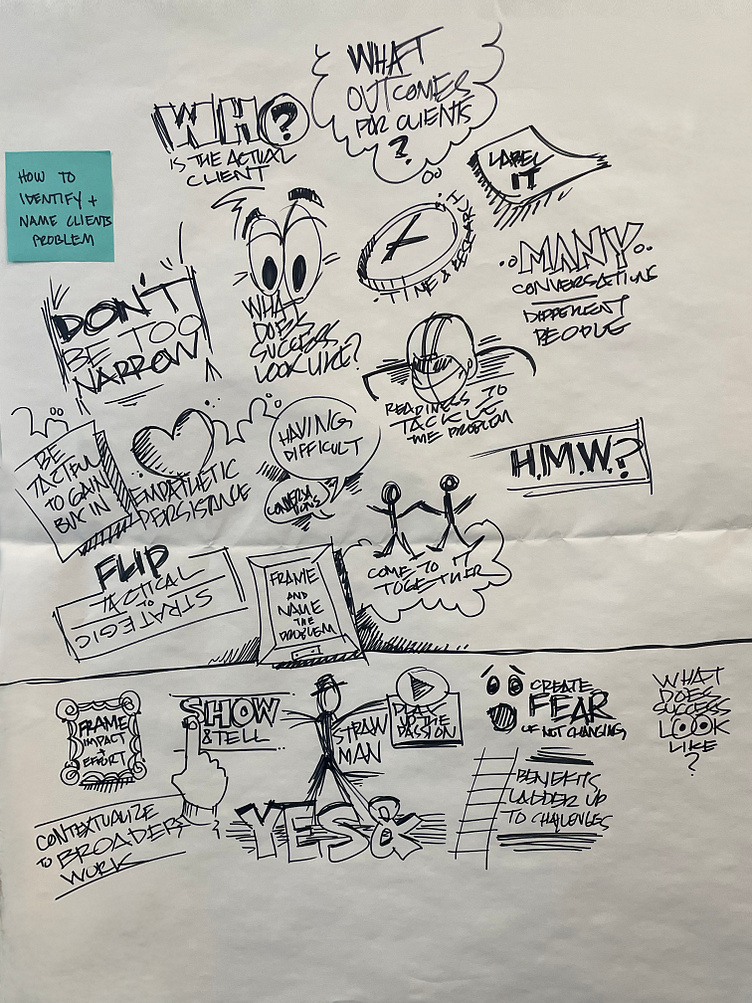 WHAT
OUTCOMES
FOR CLIENTS
?
WHO?
IS THE ACTUAL
CLIENT
LABEL
IT
HOW TO
IDENTIFY +
NAME CLIENTS
PROBLEM
TIME & RESEARCH
MANY
CONVERSATIONS
DIFFERENT
PEOPLE
DON'T
BE TOO
NARROW
WHAT
DOES
SUCCESS
LOOK LIKE?
READINESS TO
TACKLE
THE PROBLEM
BE
TACTFUL
TO GAIN
BUY IN
EMPATHETIC
PERSISTANCE
HAVING
DIFFICULT
CONVERSA
TIONS
H.M.W.?
COME TO IT
TOGETHER
FLIP
TACTICAL
TO
STRATEGIC
FRAME
AND
NAME
THE
PROBLEM
FRAME
IMPACT
+
EFFORT
SHOW
& TELL
STRAW
MAN
PLAY
UP THE
PASSION
CREATE
FEAR
OF NOT CHANGING
WHAT
DOES
SUCCESS
LOOK
LIKE
?
CONTEXTUALIZE
TO BROADER
WORK
YES&
BENEFITS
LADDER UP
TO CHALLENGES